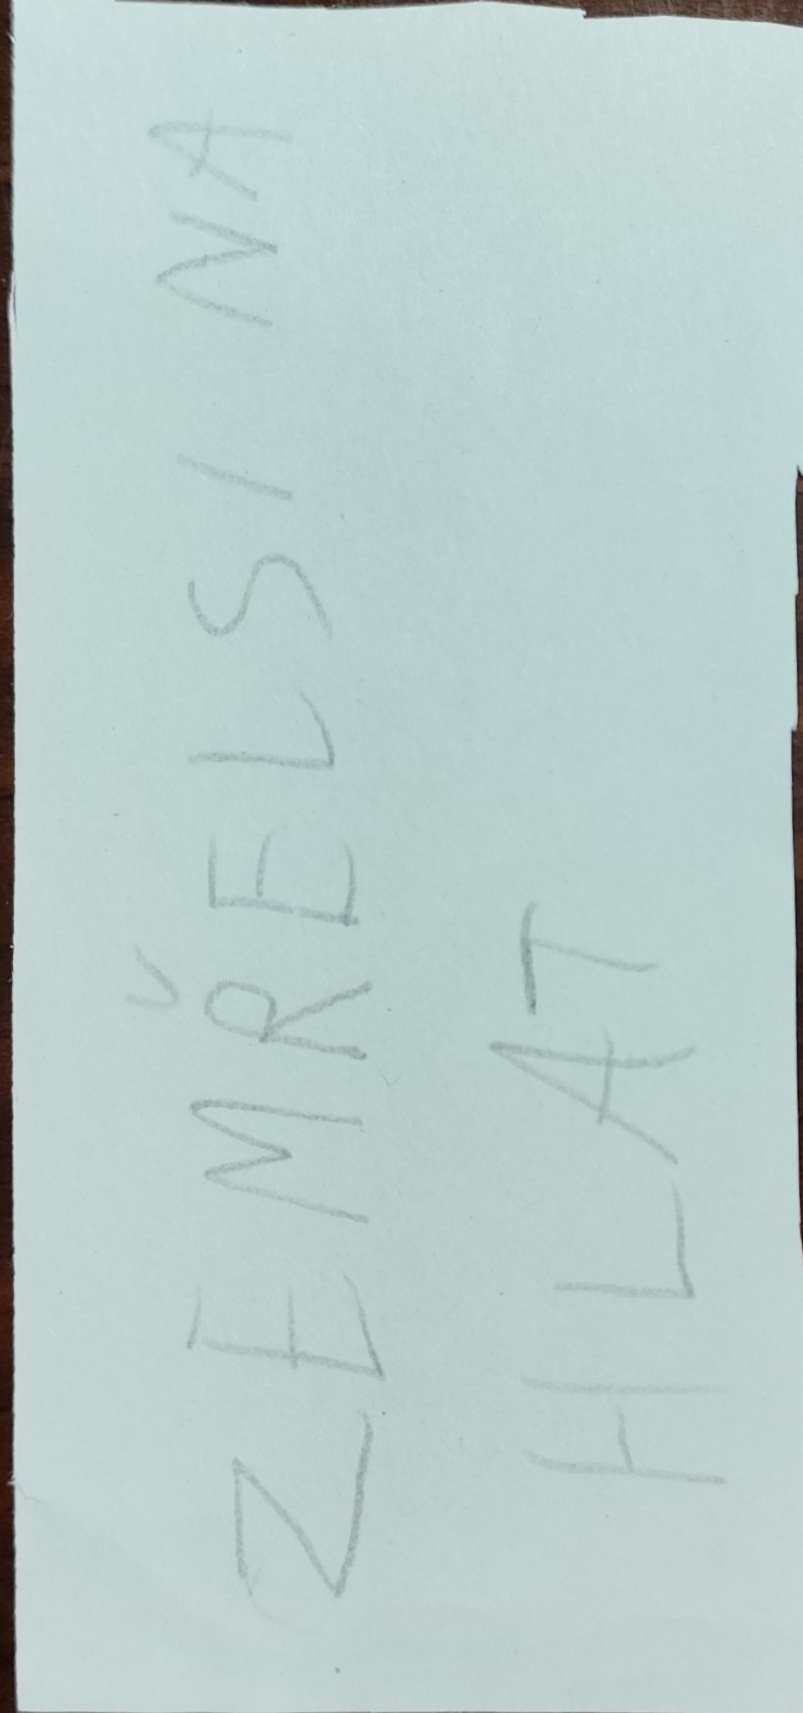 ZEMŘEL SI NA
HLAT